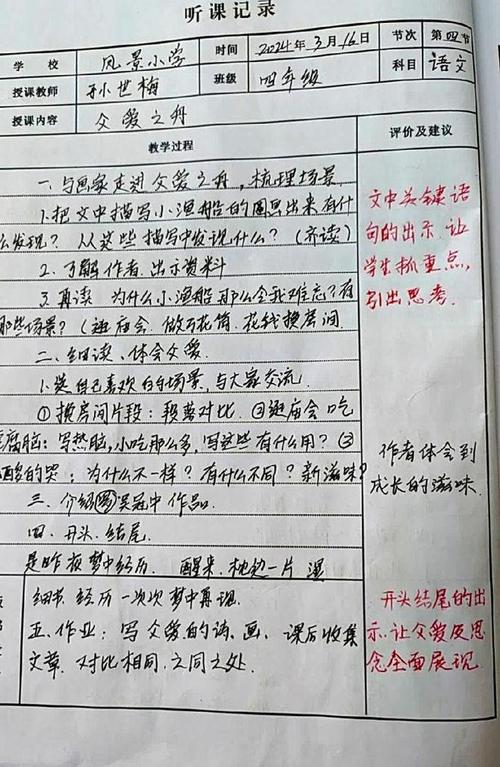 听课记录
学 校 凤景小学 时间 2024年3月16日 节次 第四节
授课教师 孙世梅 班级 四年级 科目 语文
授课内容 父爱之舟
教学过程 评价及建议
一、与画家走进父爱之舟,梳理场景.
1.把文中描写小渔船的圈画出来有什
么发现?从这些描写中发现什么?(齐读)
2.了解作者.出示资料
3.再读 为什么小渔船那么令我难忘?有
那些场景?(逛庙会.做万花筒.花钱换房间
二、细读、体会父爱.
1.选自己喜欢的场景,与大家交流.
①换房间片段:段落对比.②逛庙会吃
豆腐脑:写热脑,小吃那么多,写这些有什么用?③
的哭:为什么不一样?有什么不同?新滋味?
三.介绍吴冠中作品.
四.开头.结尾.
是昨夜梦中经历. 醒来.枕边一片 湿
细节.经历一次次梦中再现.
五.作业:写父爱的诗、画. 课后收集
文章.对比相同.之同之处.
文中关键语
句的出示,让
学生抓重点,
引出思考.
作者体会到
成长的滋味.
开头结尾的出
示,让父爱及思
念全面展现.